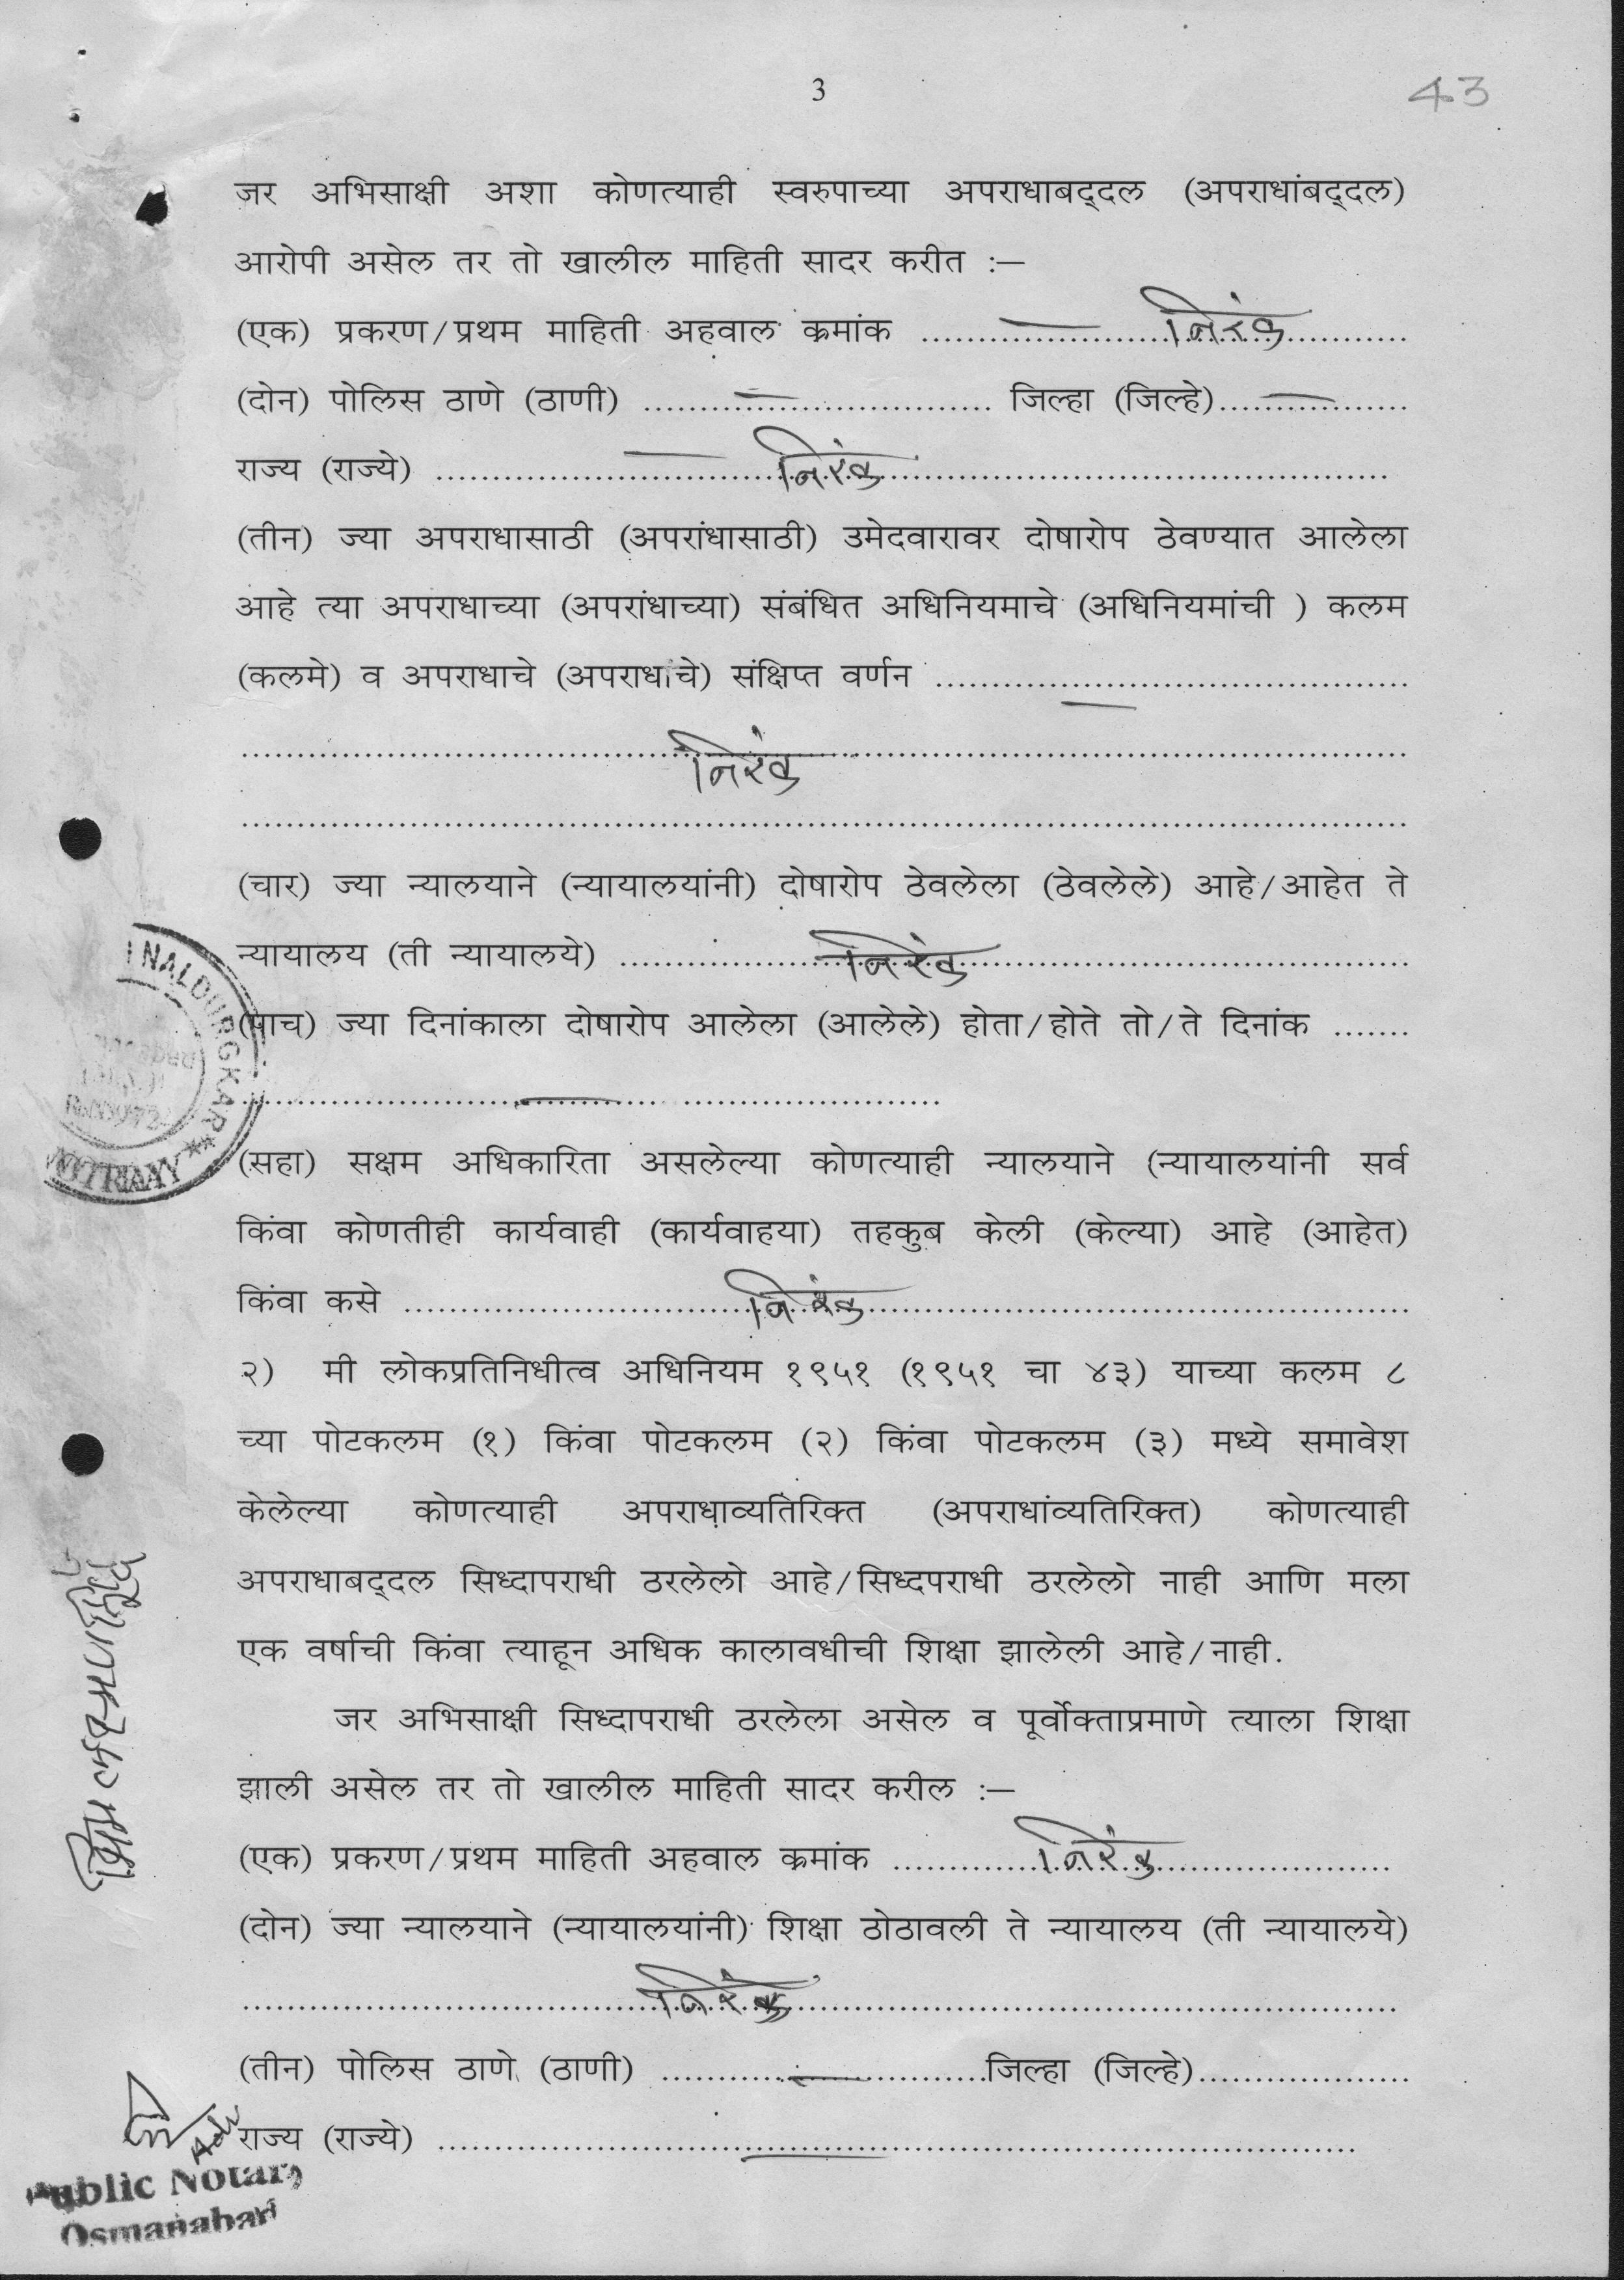 3
43
जर अभिसाक्षी अशा कोणत्याही स्वरुपाच्या अपराधाबद्दल (अपराधांबद्दल)
आरोपी असेल तर तो खालील माहिती सादर करीत :—
(एक) प्रकरण/प्रथम माहिती अहवाल क्रमांक .......... निरंक ..........
(दोन) पोलिस ठाणे (ठाणी) .......... — .......... जिल्हा (जिल्हे).......... — ..........
राज्य (राज्ये) .......... — निरंक ..........
(तीन) ज्या अपराधासाठी (अपरांधासाठी) उमेदवारावर दोषारोप ठेवण्यात आलेला
आहे त्या अपराधाच्या (अपरांधाच्या) संबंधित अधिनियमाचे (अधिनियमांची ) कलम
(कलमे) व अपराधाचे (अपराधांचे) संक्षिप्त वर्णन .......... — ..........
.......... निरंक ..........
..........
(चार) ज्या न्यालयाने (न्यायालयांनी) दोषारोप ठेवलेला (ठेवलेले) आहे/आहेत ते
न्यायालय (ती न्यायालये) .......... निरंक ..........
(पाच) ज्या दिनांकाला दोषारोप आलेला (आलेले) होता/होते तो/ते दिनांक .......
.......... — ..........
(सहा) सक्षम अधिकारिता असलेल्या कोणत्याही न्यालयाने (न्यायालयांनी सर्व
किंवा कोणतीही कार्यवाही (कार्यवाहया) तहकुब केली (केल्या) आहे (आहेत)
किंवा कसे .......... निरंक ..........
२) मी लोकप्रतिनिधीत्व अधिनियम १९५१ (१९५१ चा ४३) याच्या कलम ८
च्या पोटकलम (१) किंवा पोटकलम (२) किंवा पोटकलम (३) मध्ये समावेश
केलेल्या कोणत्याही अपराधाव्यतिरिक्त (अपराधांव्यतिरिक्त) कोणत्याही
अपराधाबद्दल सिध्दापराधी ठरलेलो आहे/सिध्दपराधी ठरलेलो नाही आणि मला
एक वर्षाची किंवा त्याहून अधिक कालावधीची शिक्षा झालेली आहे/नाही.
जर अभिसाक्षी सिध्दापराधी ठरलेला असेल व पूर्वोक्ताप्रमाणे त्याला शिक्षा
झाली असेल तर तो खालील माहिती सादर करील :—
(एक) प्रकरण/प्रथम माहिती अहवाल क्रमांक .......... निरंक ..........
(दोन) ज्या न्यालयाने (न्यायालयांनी) शिक्षा ठोठावली ते न्यायालय (ती न्यायालये)
.......... निरंक ..........
(तीन) पोलिस ठाणे (ठाणी) .......... — ..........जिल्हा (जिल्हे)..........
राज्य (राज्ये) .......... — ..........
NALDURGKAR
Adv
Public Notary
Osmanabad